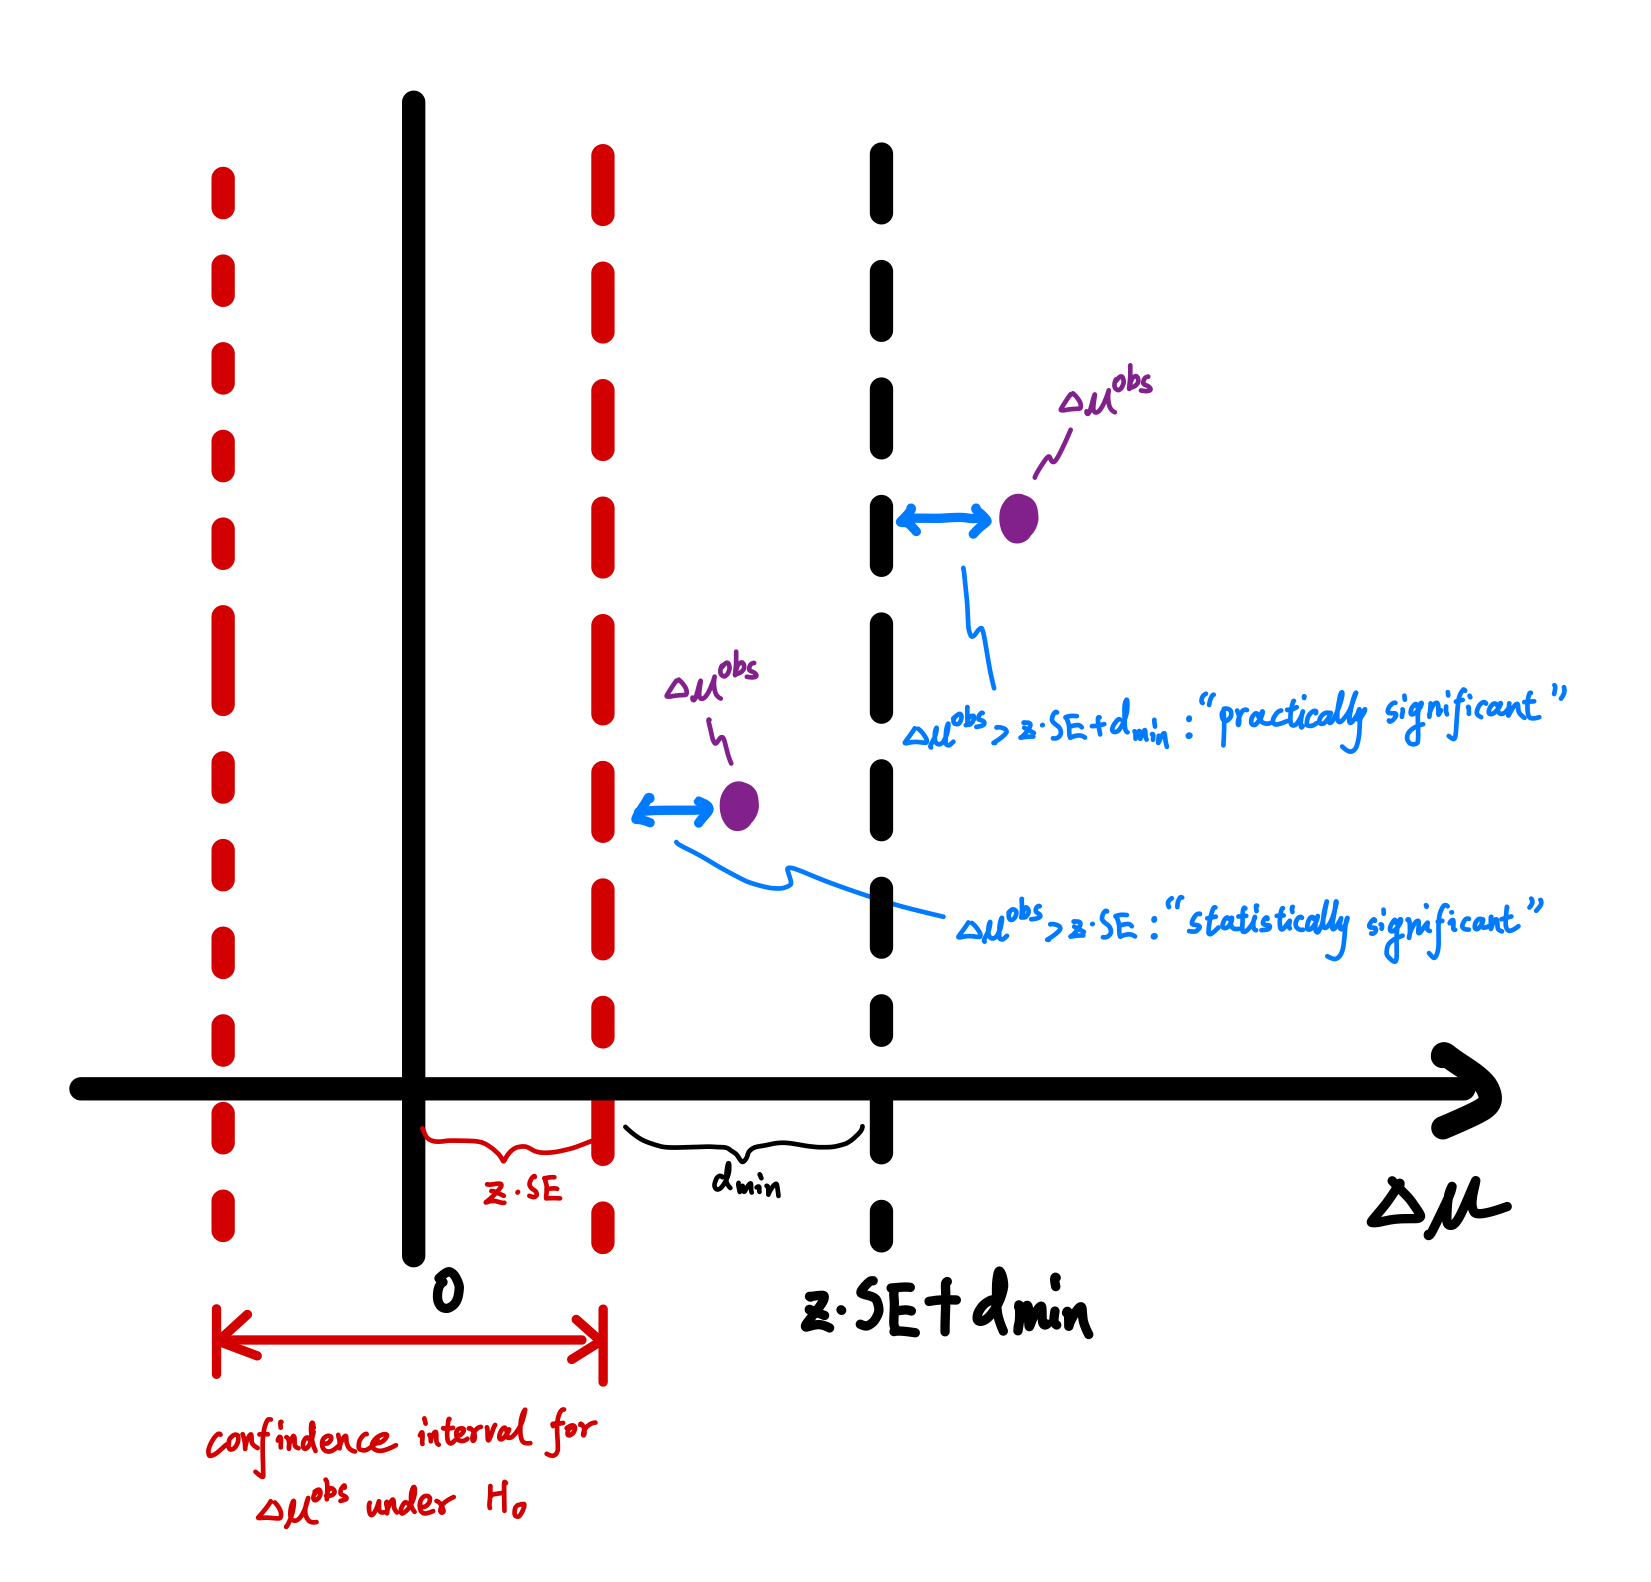 Δμ^obs
Δμ^obs
Δμ^obs > z·SE + dmin : “practically significant”
Δμ^obs > z·SE : “statistically significant”
z·SE
dmin
Δμ
0
z·SE + dmin
confindence interval for
Δμ^obs under H₀